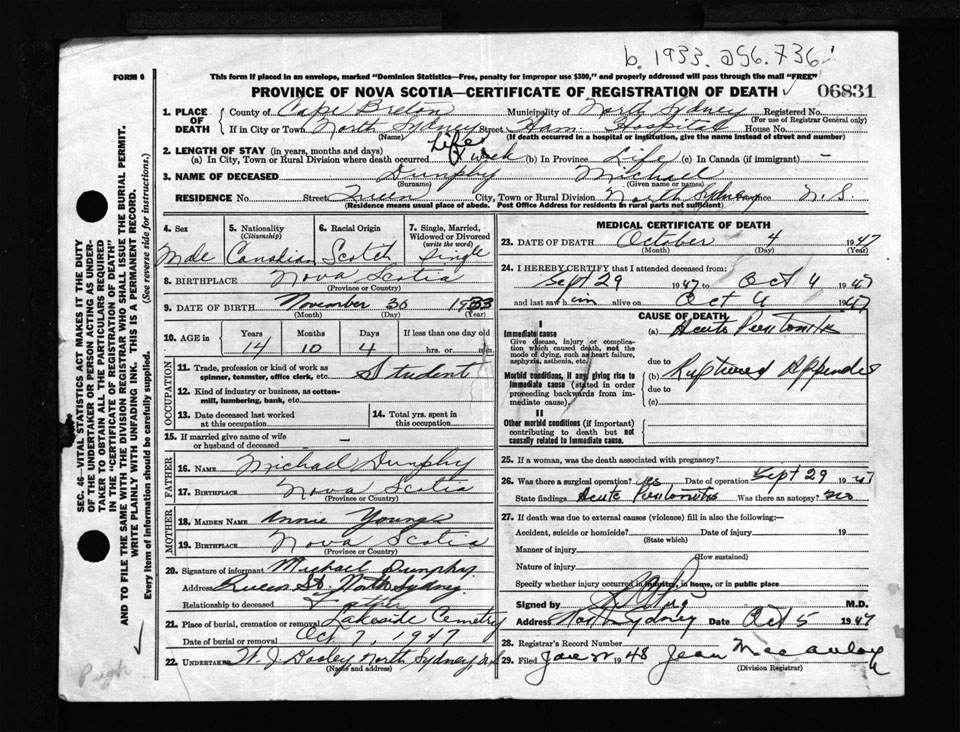 b. 1933. 256. 736
FORM 6
This form if placed in an envelope, marked "Dominion Statistics—Free, penalty for improper use $300," and properly addressed will pass through the mail "FREE"
PROVINCE OF NOVA SCOTIA—CERTIFICATE OF REGISTRATION OF DEATH 06831
1. PLACE OF DEATH County of Cape Breton Municipality of North Sydney Registered No.
(For use of Registrar General only)
If in City or Town North Sydney Street Ham Hospital House No.
(Name) (If death occurred in a hospital or institution, give the name instead of street and number)
2. LENGTH OF STAY (in years, months and days)
(a) In City, Town or Rural Division where death occurred Life week (b) In Province Life (c) In Canada (if immigrant) -
3. NAME OF DECEASED Dunphy Michael
(Surname) (Given name or names)
RESIDENCE No. Street Queen City, Town or Rural Division North Sydney Province N.S
(Residence means usual place of abode. Post Office Address for residents in rural parts not sufficient)
4. Sex Male
5. Nationality (Citizenship) Canadian
6. Racial Origin Scotch
7. Single, Married, Widowed or Divorced (write the word) Single
8. BIRTHPLACE Nova Scotia
(Province or Country)
9. DATE OF BIRTH November 30 1933
(Month) (Day) (Year)
10. AGE in Years Months Days If less than one day old
14 10 4 hrs. or min.
OCCUPATION
11. Trade, profession or kind of work as spinner, teamster, office clerk, etc. Student
12. Kind of industry or business, as cotton-mill, lumbering, bank, etc.
13. Date deceased last worked at this occupation
14. Total yrs. spent in this occupation
15. If married give name of wife or husband of deceased -
FATHER
16. NAME Michael Dunphy
17. BIRTHPLACE Nova Scotia
(Province or Country)
MOTHER
18. MAIDEN NAME Annie Young
19. BIRTHPLACE Nova Scotia
(Province or Country)
20. Signature of informant Michael Dunphy
Address Queen St. North Sydney
Relationship to deceased Father
21. Place of burial, cremation or removal Lakeside Cemetry
Date of burial or removal Oct 7, 1947
22. UNDERTAKER W. J. Dooley North Sydney, N.S
(Name and address)
MEDICAL CERTIFICATE OF DEATH
23. DATE OF DEATH October 4 1947
(Month) (Day) (Year)
24. I HEREBY CERTIFY that I attended deceased from:
Sept 29 1947 to Oct 4 1947
and last saw him alive on Oct 4 1947
CAUSE OF DEATH
I
Immediate cause
Give disease, injury or complication which caused death, not the mode of dying, such as heart failure, asphyxia, asthenia, etc.
(a) Acute Peritonitis
due to
Morbid conditions, if any, giving rise to immediate cause (stated in order proceeding backwards from immediate cause).
(b) Ruptured Appendix
due to
(c)
II
Other morbid conditions (if important) contributing to death but not causally related to immediate cause.
25. If a woman, was the death associated with pregnancy?
26. Was there a surgical operation? Yes Date of operation Sept 29 1947
State findings Acute Peritonitis Was there an autopsy? no
27. If death was due to external causes (violence) fill in also the following:—
Accident, suicide or homicide? Date of injury 19
(State which)
Manner of injury
(How sustained)
Nature of injury
Specify whether injury occurred in industry, in home, or in public place
Signed by M.D.
Address North Sydney Date Oct 5 1947
28. Registrar's Record Number
29. Filed 1948 Jean MacAulay
(Division Registrar)
SEC. 46—VITAL STATISTICS ACT MAKES IT THE DUTY
OF THE UNDERTAKER OR PERSON ACTING AS UNDER-
TAKER TO OBTAIN ALL THE PARTICULARS REQUIRED
IN THE "CERTIFICATE OF REGISTRATION OF DEATH"
AND TO FILE THE SAME WITH THE DIVISION REGISTRAR WHO SHALL ISSUE THE BURIAL PERMIT.
WRITE PLAINLY WITH UNFADING INK. THIS IS A PERMANENT RECORD.
Every item of information should be carefully supplied. (See reverse side for instructions.)
Pugh